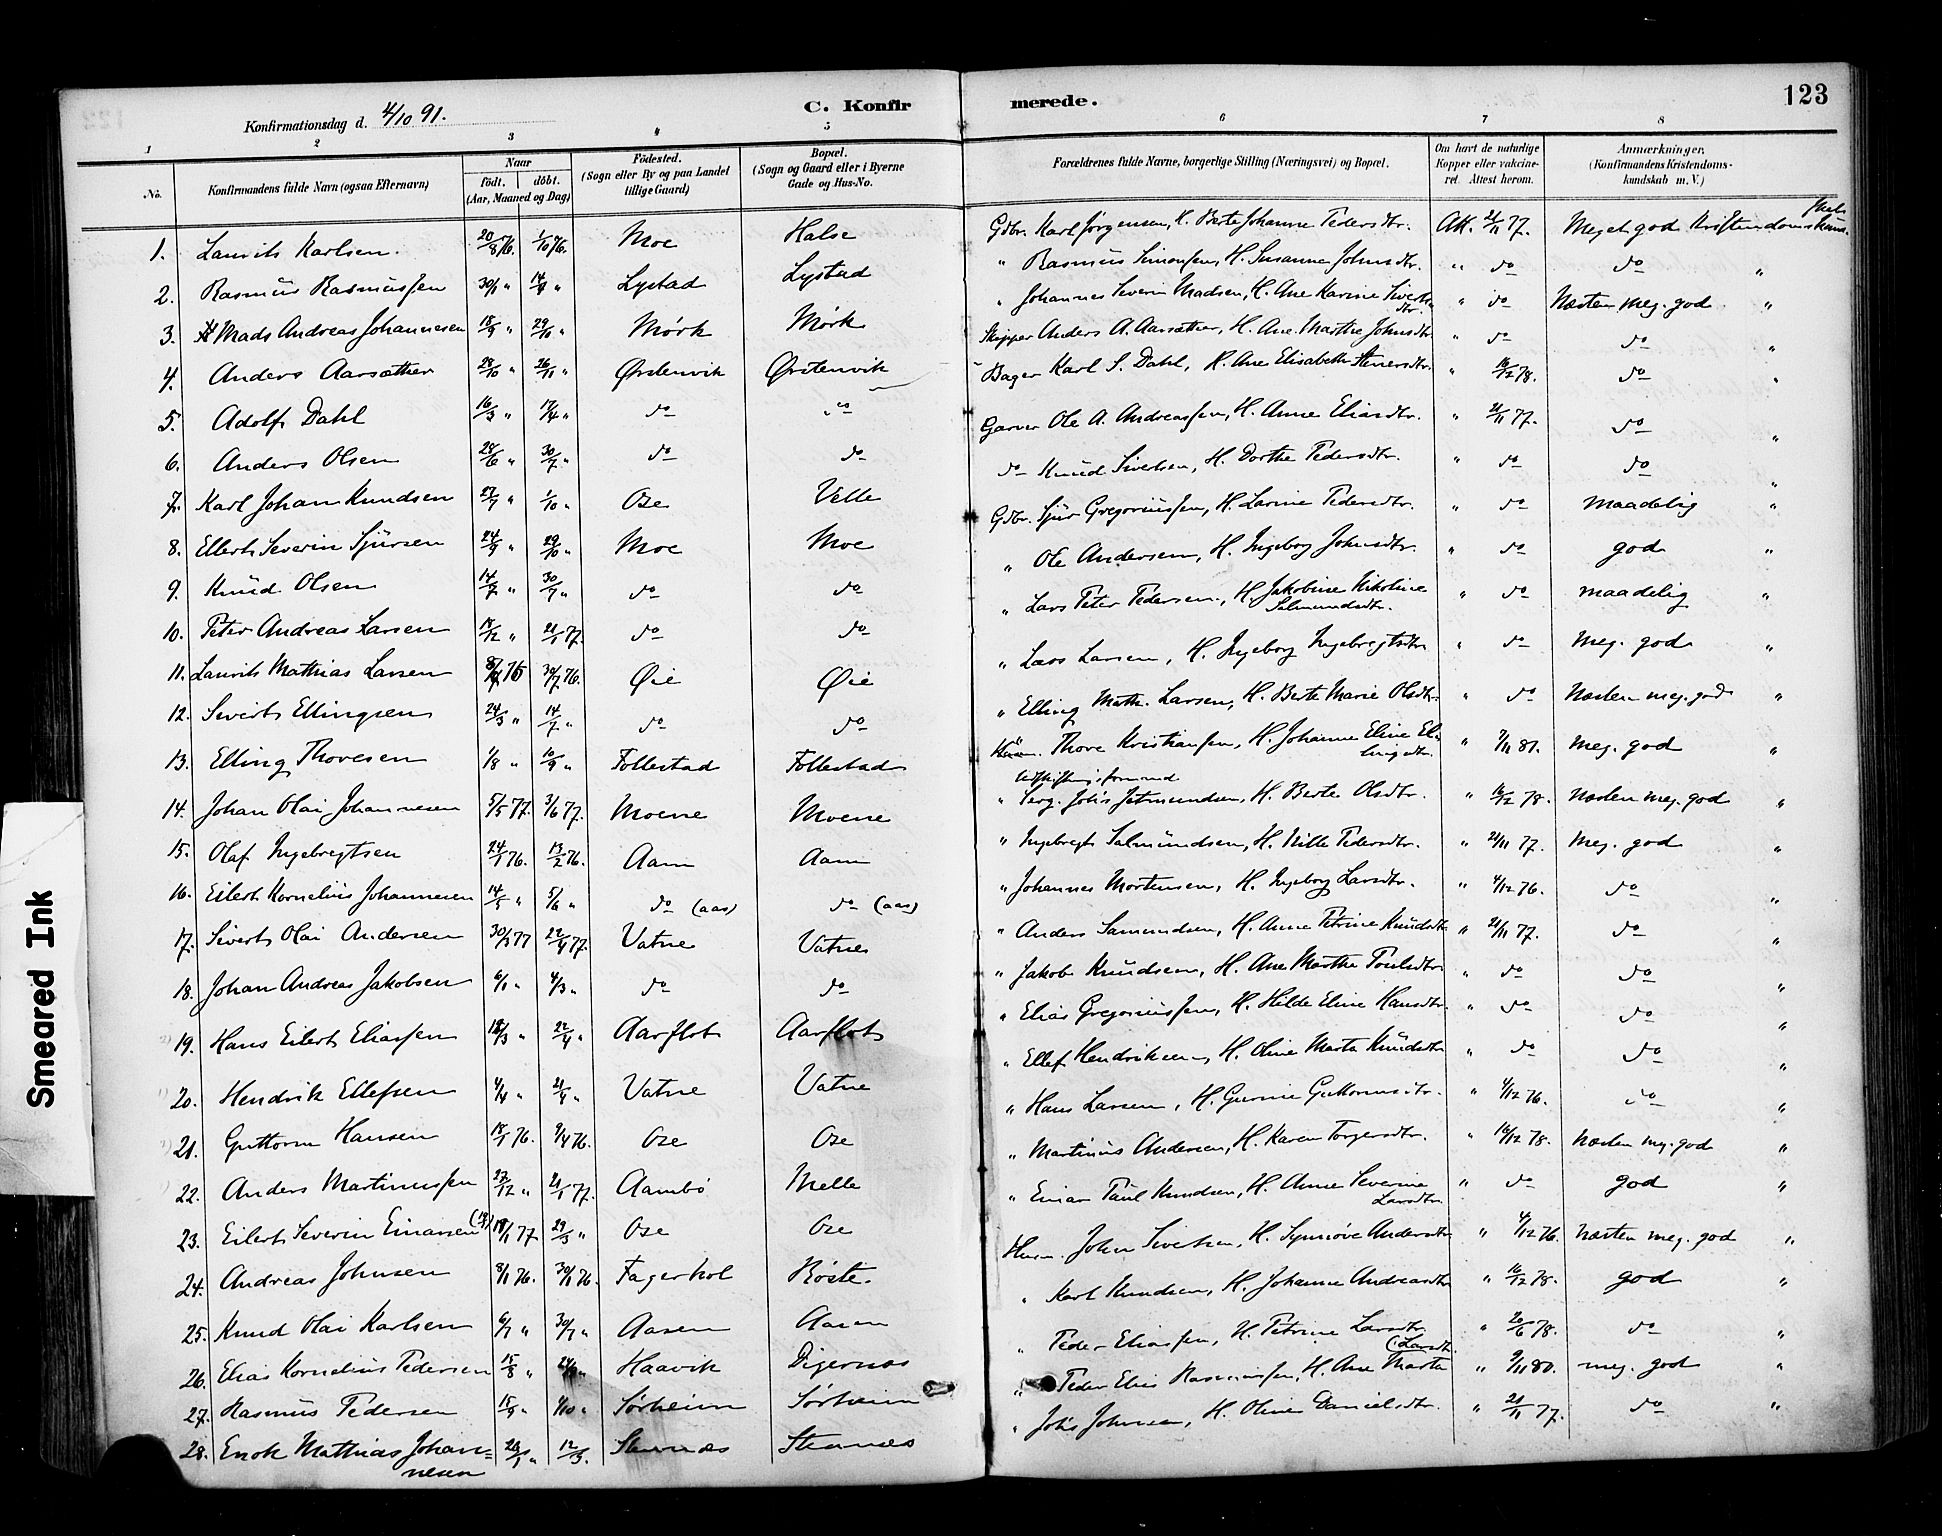 123
C. Konfirmerede.
Konfirmationsdag d. 4/10 91.
1 2 3 4 5 6 7 8
No. Konfirmandens fulde Navn (ogsaa Efternavn) Naar født. døbt. (Aar, Maaned og Dag) Fødested. (Sogn eller By og paa Landet tillige Gaard) Bopæl. (Sogn og Gaard eller i Byerne Gade og Hus-No. Forældrenes fulde Navne, borgerlige Stilling (Næringsvei) og Bopæl. Om havt de naturlige Kopper eller vakcineret. Attest herom. Anmærkninger. (Konfirmandens Kristendomskundskab m. V.)
1. Laurits Karlsen. 20/8 76. 1/10 76. Moe Halse Gdbr. Karl Jørgensen, H. Berte Johanne Pedersdtr. Att. 21/11 77. Meget god Kristendoms
2. Rasmus Rasmussen 30/1 " " Lystad Lystad " Rasmus Simonsen, H. Susanne Johnsdtr. " do do "
3. Mads Andreas Johannesen 18/9 " 29/10 " Mørk Mørk " Johannes Severin Madsen, H. Ane Karine Sivertsdtr. " do Næsten meg. god "
4. Anders Aarsæther 28/10 " 26/11 " Ørstenvik Ørstenvik Skipper Anders A. Aarsæther, H. Ane Marthe Johnsdtr. " do do "
5. Adolf Dahl 16/3 " 17/4 " do do Bager Karl S. Dahl, H. Ane Elisabeth " 16/12 78. do "
6. Anders Olsen 28/6 " 30/7 " do do Garver Ole A. Andreassen, H. Anne Eliasdtr. " 21/11 77. do "
7. Karl Johan Knudsen 27/7 " 1/10 " Ose Velle do Knud Sivertsen, H. Dorthe Pedersdtr. " do do "
8. Ellert Severin Sjursen 24/9 " 29/10 " Moe Moe Gdbr. Sjur Gregoriussen, H. Larine Pedersdtr. " do maadelig "
9. Knud Olsen 14/7 " 30/7 " do do " Ole Andersen, H. Ingeborg Johnsdtr. " do god "
10. Peter Andreas Larsen 18/12 " 21/1 77. do do " Lars Peter Pedersen, H. Jakobine Nikoline Salmundsdtr. " do maadelig "
11. Laurits Mathias Larsen 76 30/7 76. Øie Øie " Lars Larsen, H. Ingeborg Ingebregtsdtr. " do meg. god "
12. Sivert Ellingsen 24/3 " 14/7 " do do " Elling Math. Larsen, H. Berte Marie Olsdtr. " do Næsten meg. god "
13. Elling Thoresen 1/8 " 10/9 " Follestad Follestad Thore Kristiansen, H. Johanne Eline Ellingsdtr. " 9/11 81. meg. god "
14. Johan Olai Johannesen 5/5 77. 3/6 77. Moene Moene " Udskiftningsformand Serg. Johs Jetmundsen, H. Berte Olsdtr. " 16/12 78. Næsten meg. god "
15. Olaf Ingebregtsen 24/1 76. 13/2 76. Aam Aam " Ingebregt Salmundsen, H. Nille Pedersdtr. " 21/11 77. Meg. god "
16. Eilert Kornelius Johannesen 14/5 " 5/6 " do (aas) do (aas) " Johannes Mortensen, H. Ingeborg Larsdtr. " 4/12 76. do "
17. Sivert Olai Andersen 30/3 77 22/4 77. Vatne Vatne " Anders Samundsen, H. Anne Petrine Knudsdtr " 21/11 77. do "
18. Johan Andreas Jakobsen 6/1 " 4/3 " do do " Jakob Knudsen, H. Ane Marthe Poulsdtr. " do do "
19. Hans Eilert Eliassen 18/3 " 22/4 " Aarflot Aarflot " Elias Gregoriussen, H. Hilde Eline Hansdtr. " do do "
20. Hendrik Ellefsen 4/4 " 21/4 " Vatne Vatne " Ellef Hendriksen, H. Oline Marta Knudsdtr " do do "
21. Guttorm Hansen 18/1 76. 9/4 76. Ose Ose " Hans Larsen, H. Gurine Guttormsdtr. " 4/12 76. do "
22. Anders Martinussen 23/12 " 21/1 77. Aambø Melle " Martinus Andersen, H. Karen Torgersdtr. " 16/12 78. Næsten meg. god "
23. Eilert Severin Einarsen 77. 29/3 " Ose Ose " Einar Paul Knudsen, H. Anne Severine Larsdtr. " do god "
24. Andreas Johnsen 8/1 76. 30/1 76. Fagerhol Røste. Husm. John Sivertsen, H. Synnøve Andersdtr " 4/12 76. Næsten meg. god "
25. Knud Olai Karlsen 6/7 " 30/7 " Aasen Aasen " Karl Knudsen, H. Johanne Andreasdtr " 16/12 78. god "
26. Elias Kornelius Pedersen 15/8 " " Haavik Digernæs " Peder Eliassen, H. Petrine Larsdtr. " 20/6 78. do "
27. Rasmus Pedersen 15/9 " 1/10 " Sørheim Sørheim " Peder Elias Rasmussen, H. Ane Marta (Larsdtr. " 9/11 80. meg. god "
28. Enok Mathias Johannesen 20/1 " 12/3. Stennæs Stennæs " Johs Johnsen, H. Oline Danielsdtr. " 21/11 77. do "
Smeared Ink